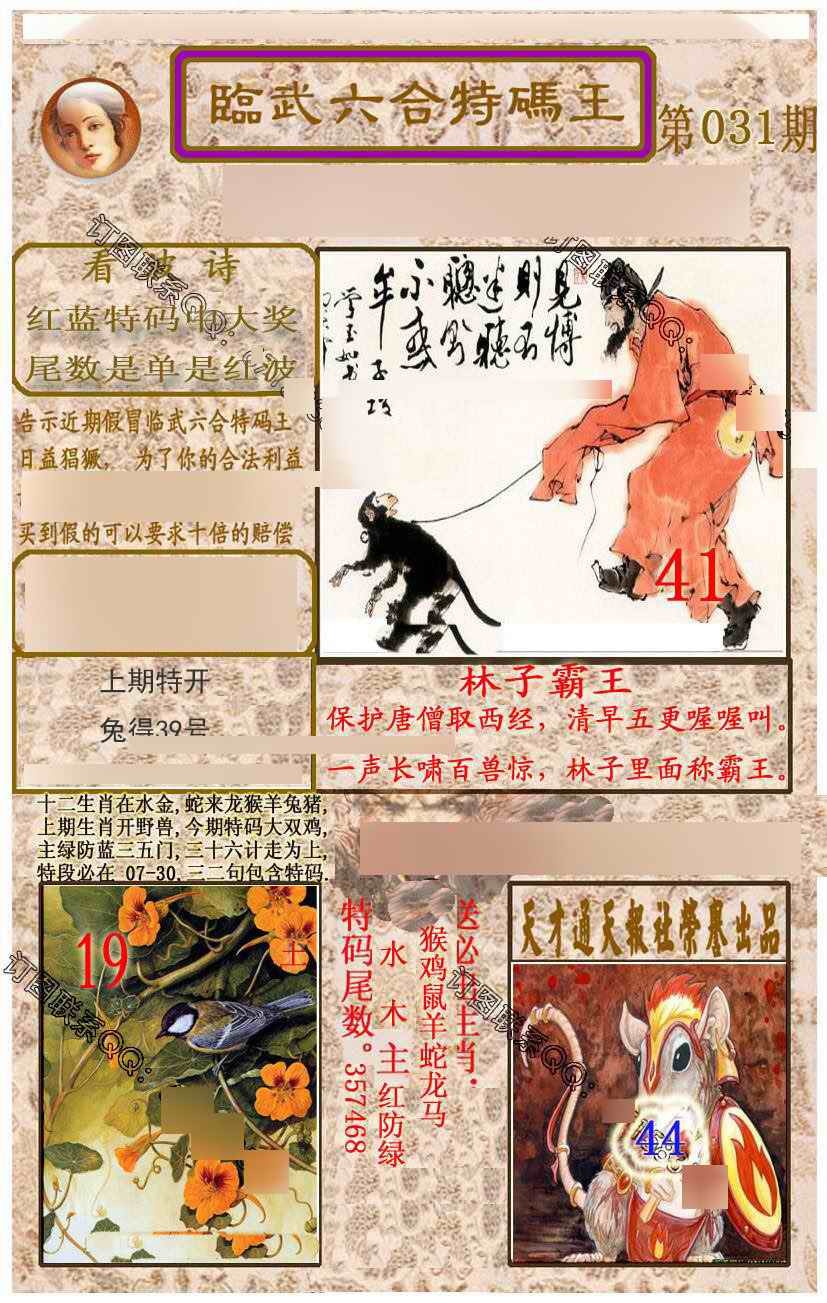 臨武六合特碼王
第031期
看波诗
红蓝特码中大奖
尾数是单是红波
告示近期假冒临武六合特码王
日益猖獗，为了你的合法利益
买到假的可以要求十倍的赔偿
上期特开
兔得39号
见博
则不
迷聽
聰則
不惑
牟子
41
林子霸王
保护唐僧取西经，清早五更喔喔叫。
一声长啸百兽惊，林子里面称霸王。
十二生肖在水金,蛇来龙猴羊兔猪,
上期生肖开野兽,今期特码大双鸡,
主绿防蓝三五门,三十六计走为上,
特段必在 07-30.三二句包含特码.
19
土
猴鸡鼠羊蛇龙马
水木主红防绿
特码尾数。357468
天才通天报社荣誉出品
44
订图联系QQ:
订图联系QQ:
订图联系QQ:
订图联系QQ: